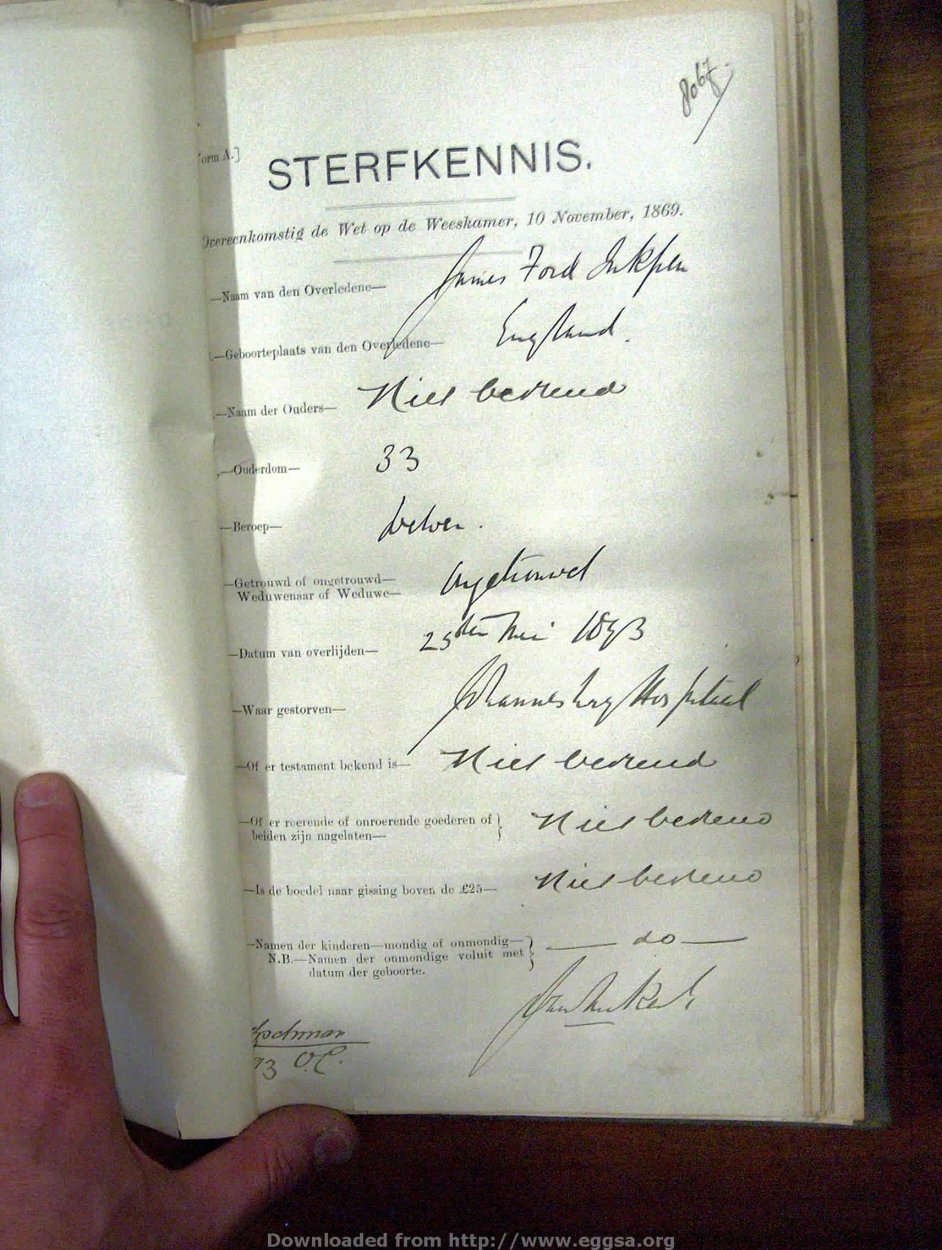 8067.
orm A.]
STERFKENNIS.
Overeenkomstig de Wet op de Weeskamer, 10 November, 1869.
—Naam van den Overledene— James Ford Inkpen
.—Geboorteplaats van den Overledene— England.
—Naam der Ouders— Niet bekend
.—Ouderdom— 33
—Beroep— delver.
—Getrouwd of ongetrouwd—
Weduwenaar of Weduwe— Ongetrouwd
—Datum van overlijden— 25sten Mei 1893
—Waar gestorven— Johannesburg Hospitaal
—Of er testament bekend is— Niet bekend
—Of er roerende of onroerende goederen of }
beiden zijn nagelaten— Niet bekend
—Is de boedel naar gissing boven de £25— Niet bekend
—Namen der kinderen—mondig of onmondig— } — do —
N.B.—Namen der onmondige voluit met
datum der geboorte.
93 O.C.
Downloaded from http://www.eggsa.org